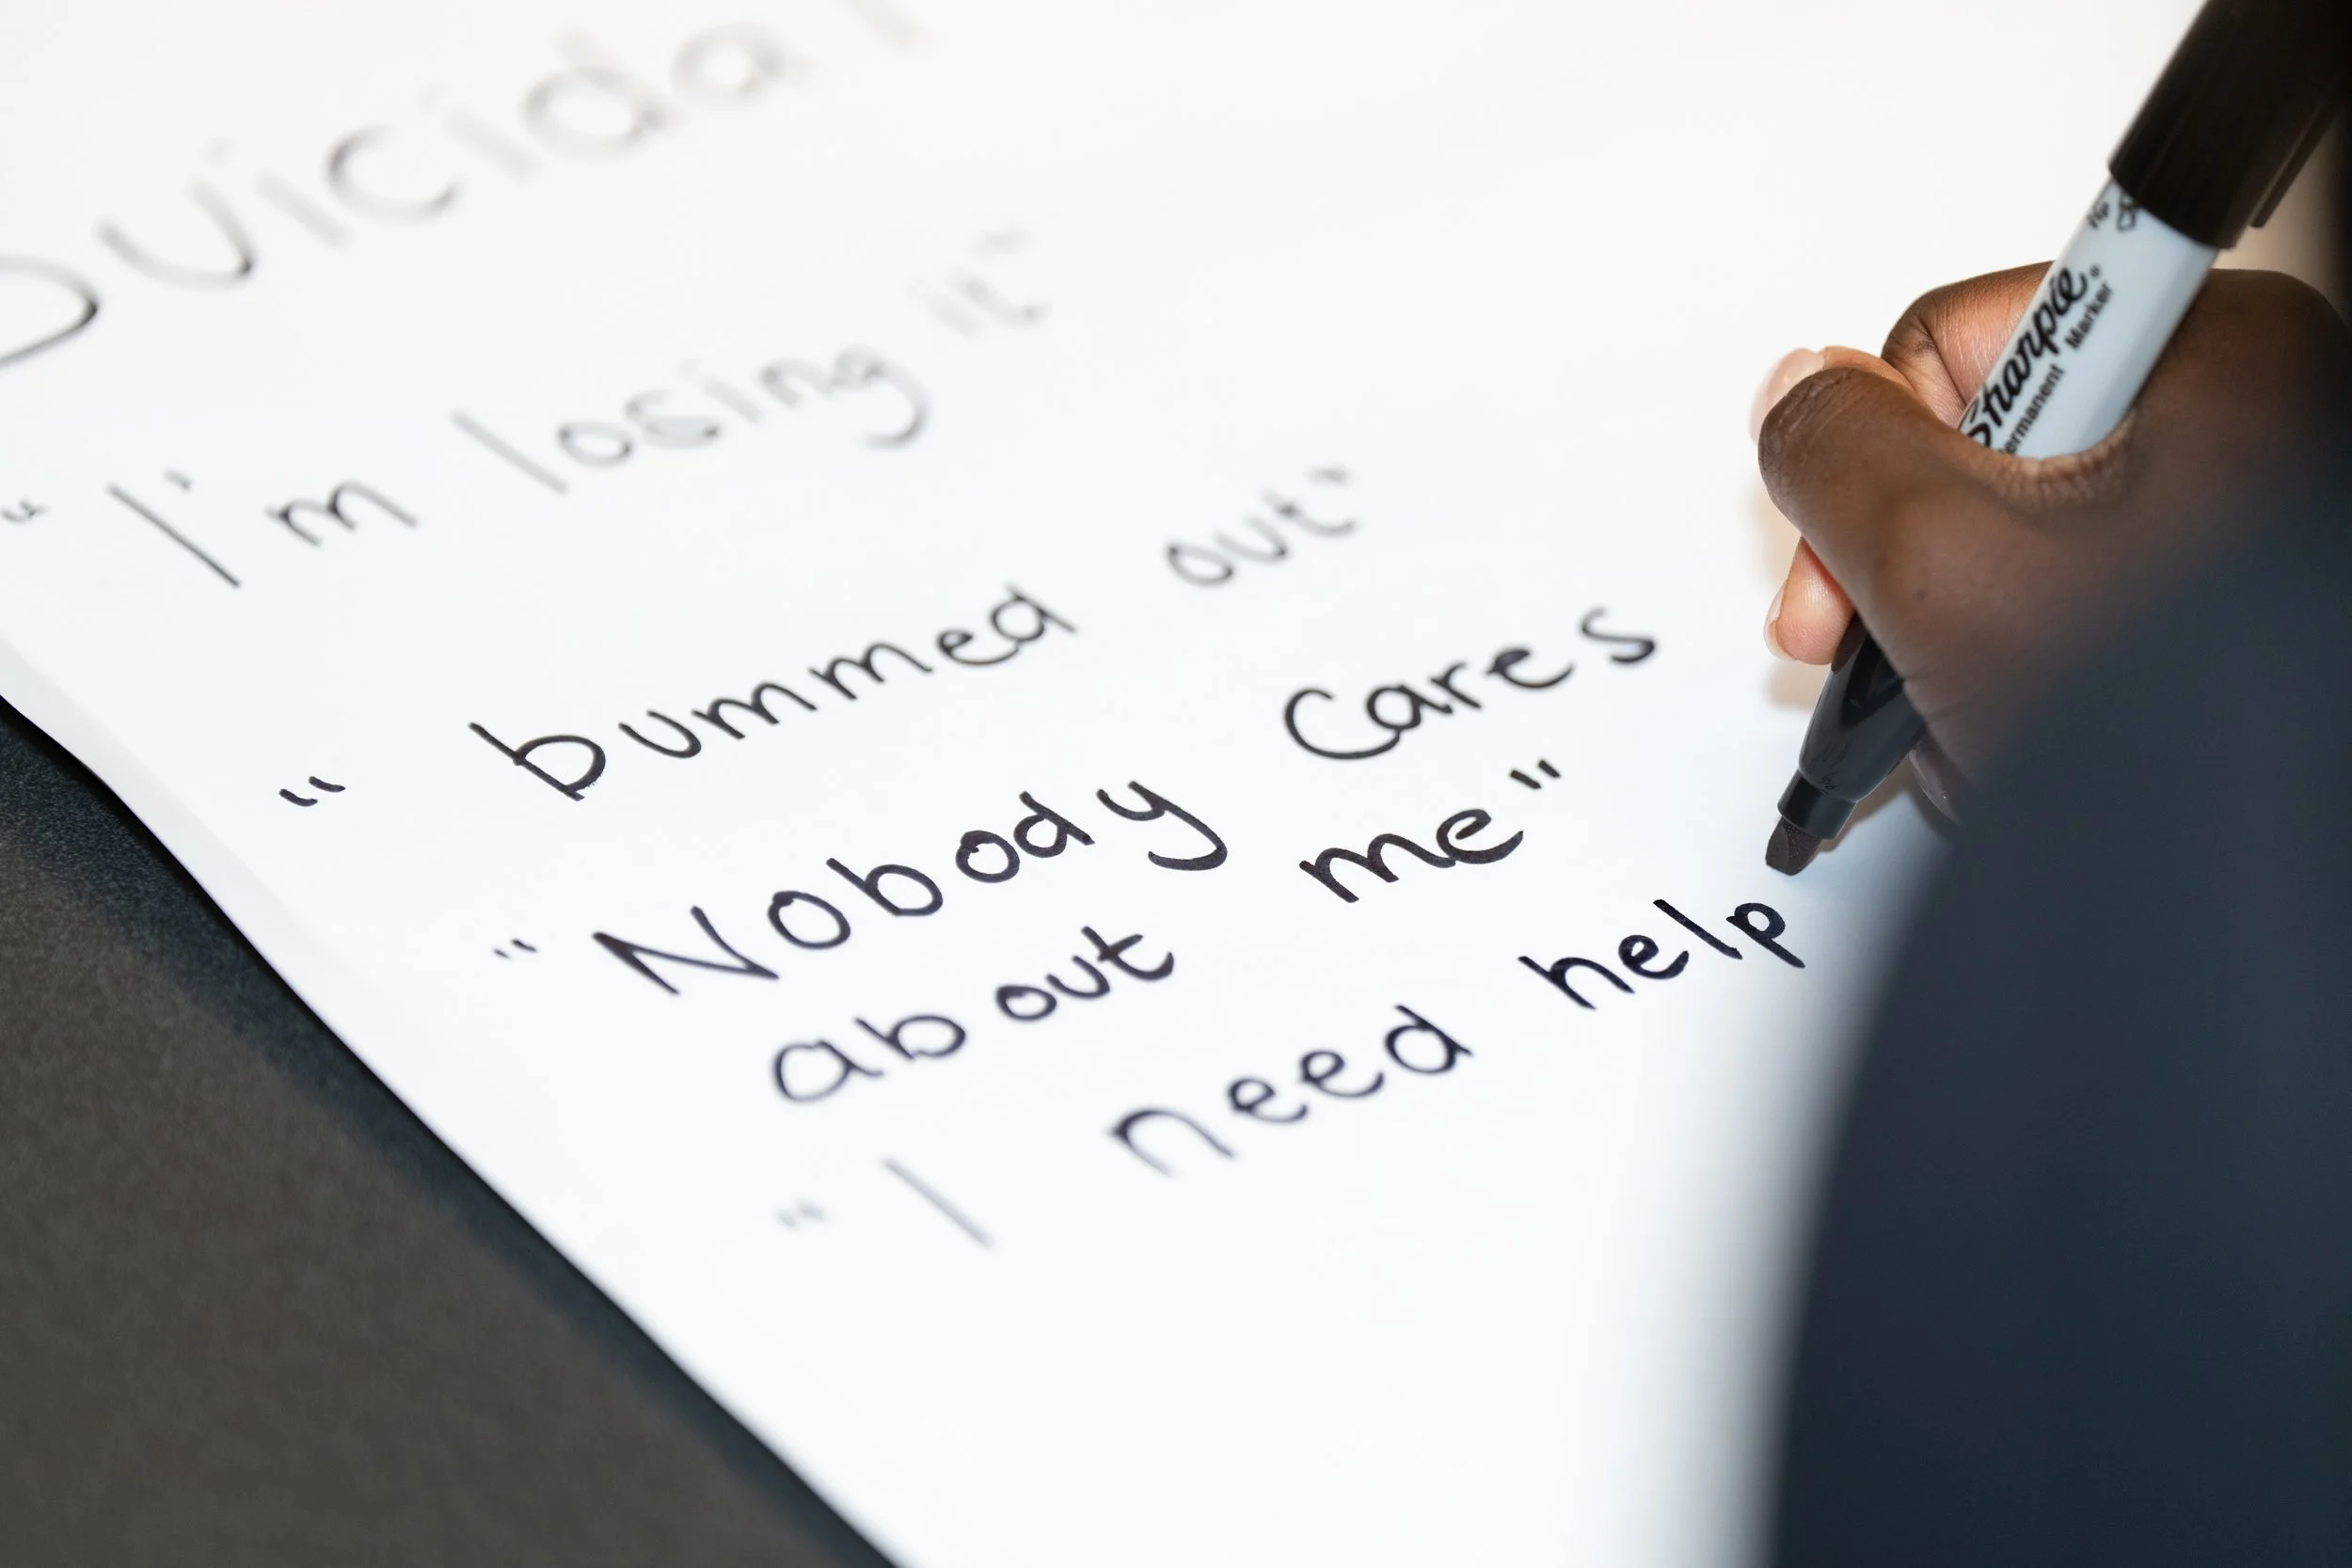 Suicidal
"I'm losing it"
"bummed out"
"Nobody Cares
about me"
"I need help
Sharpie®
Permanent Marker